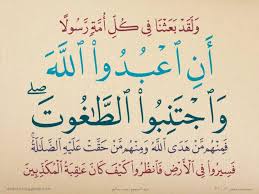 وَلَقَدْ بَعَثْنَا فِي كُلِّ أُمَّةٍ رَسُولًا
أَنِ اعْبُدُوا اللَّهَ
وَاجْتَنِبُوا الطَّاغُوتَ ۖ
فَمِنْهُمْ مَنْ هَدَى اللَّهُ وَمِنْهُمْ مَنْ حَقَّتْ عَلَيْهِ الضَّلَالَةُ ۚ
فَسِيرُوا فِي الْأَرْضِ فَانْظُرُوا كَيْفَ كَانَ عَاقِبَةُ الْمُكَذِّبِينَ